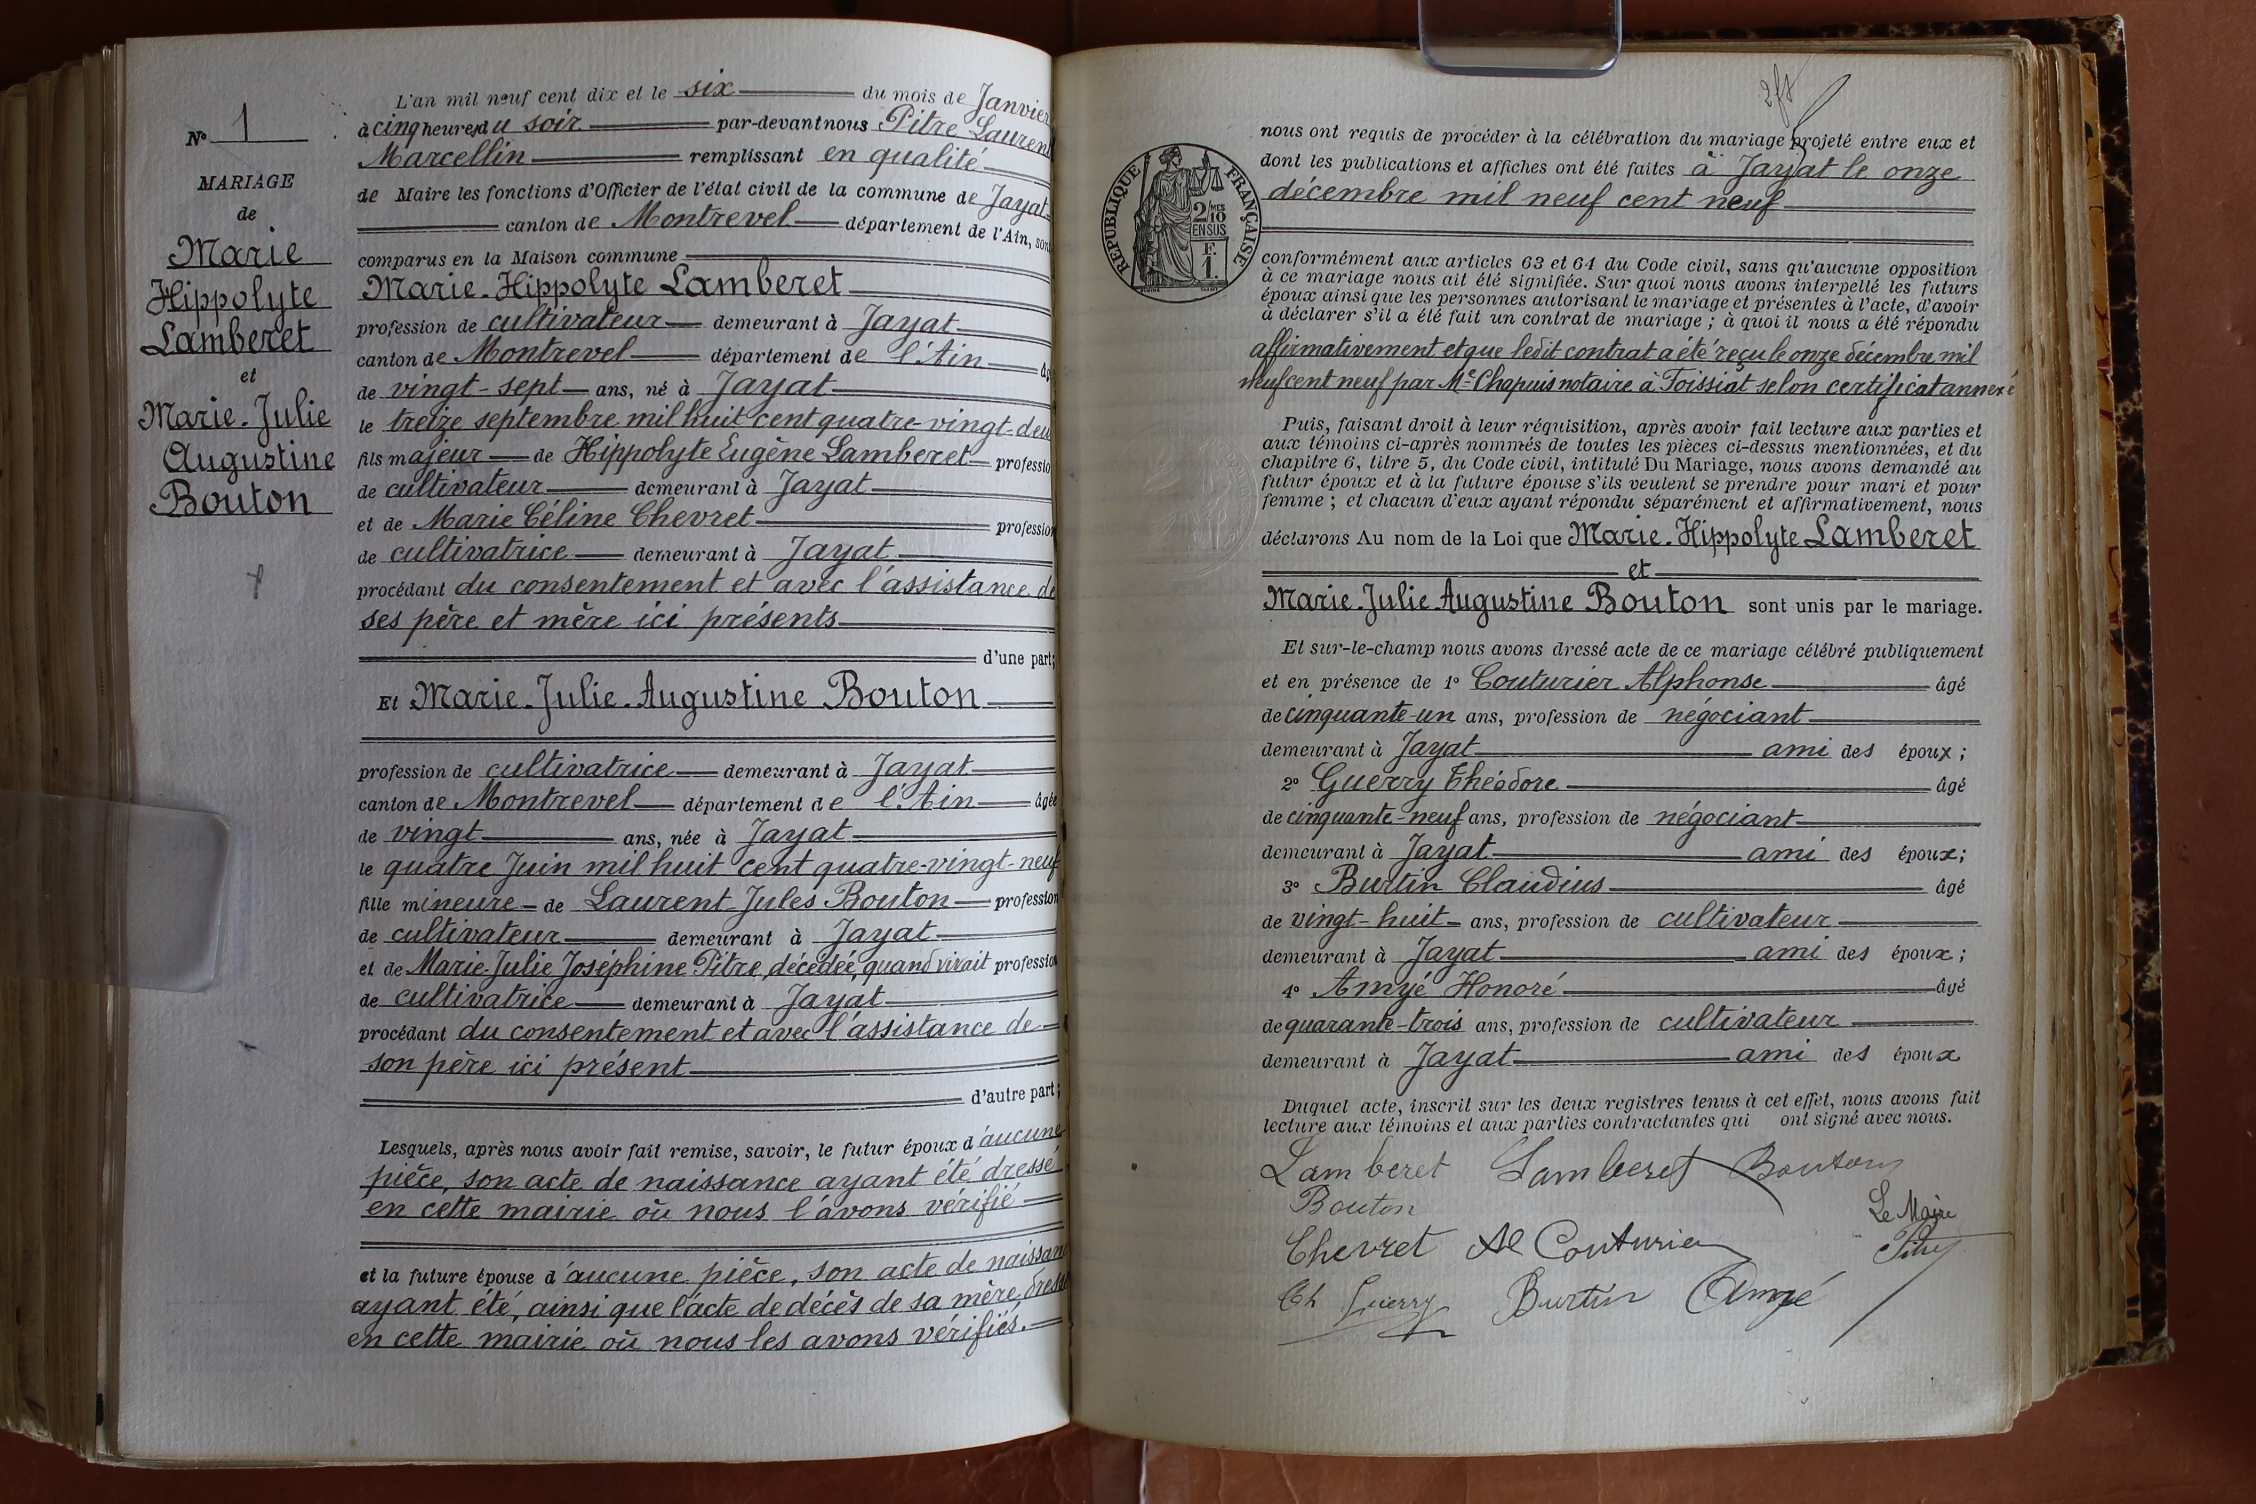 N° 1
MARIAGE
de
Marie
Hippolyte
Lamberet
et
Marie-Julie
Augustine
Bouton
L'an mil neuf cent dix et le six du mois de Janvier
à cinq heures du soir par-devant nous Pitre Laurent
Marcellin remplissant en qualité
de Maire les fonctions d'Officier de l'état civil de la commune de Jayat
canton de Montrevel département de l'Ain, sont
comparus en la Maison commune
Marie-Hippolyte Lamberet
profession de cultivateur demeurant à Jayat
canton de Montrevel département de l'Ain âgé
de vingt-sept ans, né à Jayat
le treize septembre mil huit cent quatre-vingt-deux
fils majeur de Hippolyte Eugène Lamberet profession
de cultivateur demeurant à Jayat
et de Marie Céline Chevret profession
de cultivatrice demeurant à Jayat
procédant du consentement et avec l'assistance de
ses père et mère ici présents
d'une part;
Et Marie-Julie-Augustine Bouton
profession de cultivatrice demeurant à Jayat
canton de Montrevel département de l'Ain âgée
de vingt ans, née à Jayat
le quatre Juin mil huit cent quatre-vingt-neuf
fille mineure de Laurent Jules Bouton profession
de cultivateur demeurant à Jayat
et de Marie-Julie Joséphine Pitre, décédée, quand vivait profession
de cultivatrice demeurant à Jayat
procédant du consentement et avec l'assistance de
son père ici présent
d'autre part;
Lesquels, après nous avoir fait remise, savoir, le futur époux d'aucune
pièce, son acte de naissance ayant été dressé
en cette mairie où nous l'avons vérifié
et la future épouse d'aucune pièce, son acte de naissance
ayant été, ainsi que l'acte de décès de sa mère, dressé
en cette mairie où nous les avons vérifiés.
RÉPUBLIQUE FRANÇAISE
2/10 MES
EN SUS
F.
1.
nous ont requis de procéder à la célébration du mariage projeté entre eux et
dont les publications et affiches ont été faites à Jayat le onze
décembre mil neuf cent neuf
conformément aux articles 63 et 64 du Code civil, sans qu'aucune opposition
à ce mariage nous ait été signifiée. Sur quoi nous avons interpellé les futurs
époux ainsi que les personnes autorisant le mariage et présentes à l'acte, d'avoir
à déclarer s'il a été fait un contrat de mariage ; à quoi il nous a été répondu
affirmativement et que ledit contrat a été reçu le onze décembre mil
neuf cent neuf par Me Chapuis notaire à Foissiat selon certificat annexé
Puis, faisant droit à leur réquisition, après avoir fait lecture aux parties et
aux témoins ci-après nommés de toutes les pièces ci-dessus mentionnées, et du
chapitre 6, titre 5, du Code civil, intitulé Du Mariage, nous avons demandé au
futur époux et à la future épouse s'ils veulent se prendre pour mari et pour
femme ; et chacun d'eux ayant répondu séparément et affirmativement, nous
déclarons Au nom de la Loi que Marie-Hippolyte Lamberet
et
Marie-Julie-Augustine Bouton sont unis par le mariage.
Et sur-le-champ nous avons dressé acte de ce mariage célébré publiquement
et en présence de 1° Couturier Alphonse âgé
de cinquante-un ans, profession de négociant
demeurant à Jayat ami des époux ;
2° Guerry Théodore âgé
de cinquante-neuf ans, profession de négociant
demeurant à Jayat ami des époux;
3° Burtin Claudius âgé
de vingt-huit ans, profession de cultivateur
demeurant à Jayat ami des époux ;
4° Amyé Honoré âgé
de quarante-trois ans, profession de cultivateur
demeurant à Jayat ami des époux
Duquel acte, inscrit sur les deux registres tenus à cet effet, nous avons fait
lecture aux témoins et aux parties contractantes qui ont signé avec nous.
Lamberet Lamberet Bouton
Bouton
Le Maire
Chevret Al Couturier Pitre
Th Guerry Burtin Amyé